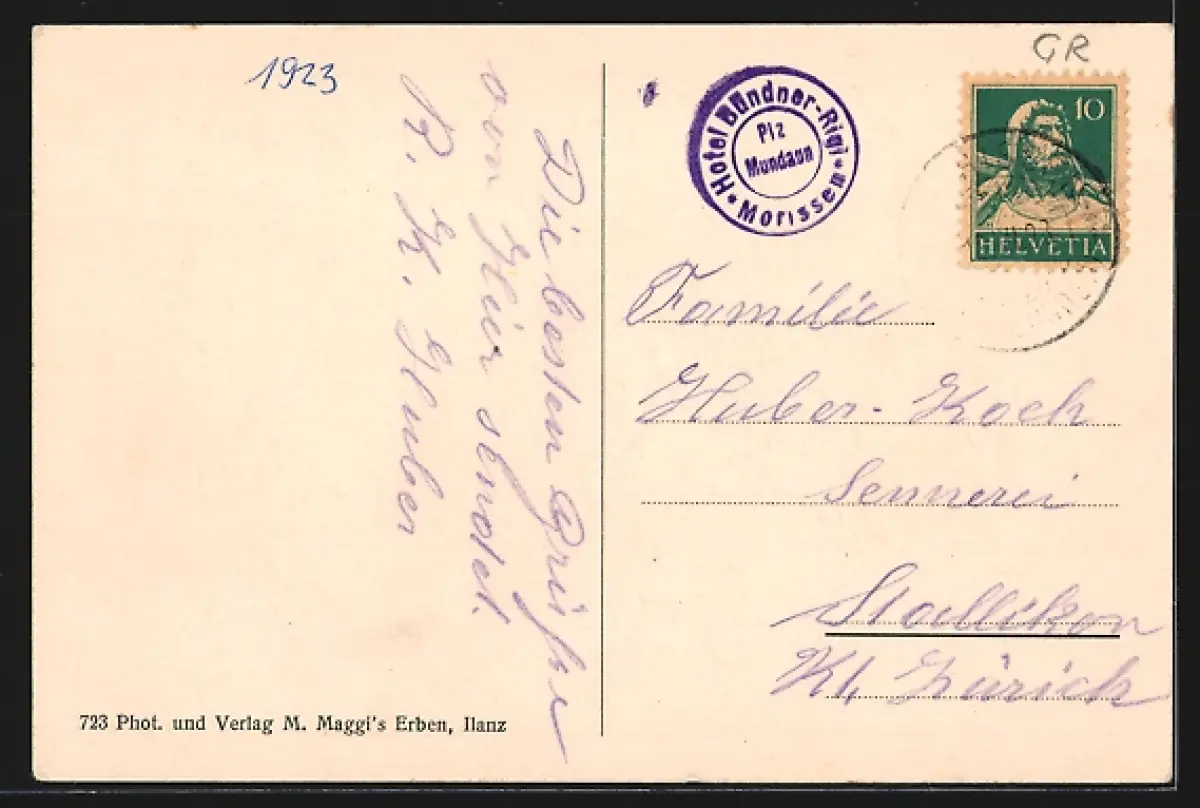 1923
GR
Die besten Grüße
von hier sendet.
R. K. Huber
Hotel Bündner-Rigi
Piz
Mundaun
Morissen
10
HELVETIA
Familie
Huber-Koch
Sennerei
Stallikon
Kt. Zürich
723 Phot. und Verlag M. Maggi's Erben, Ilanz